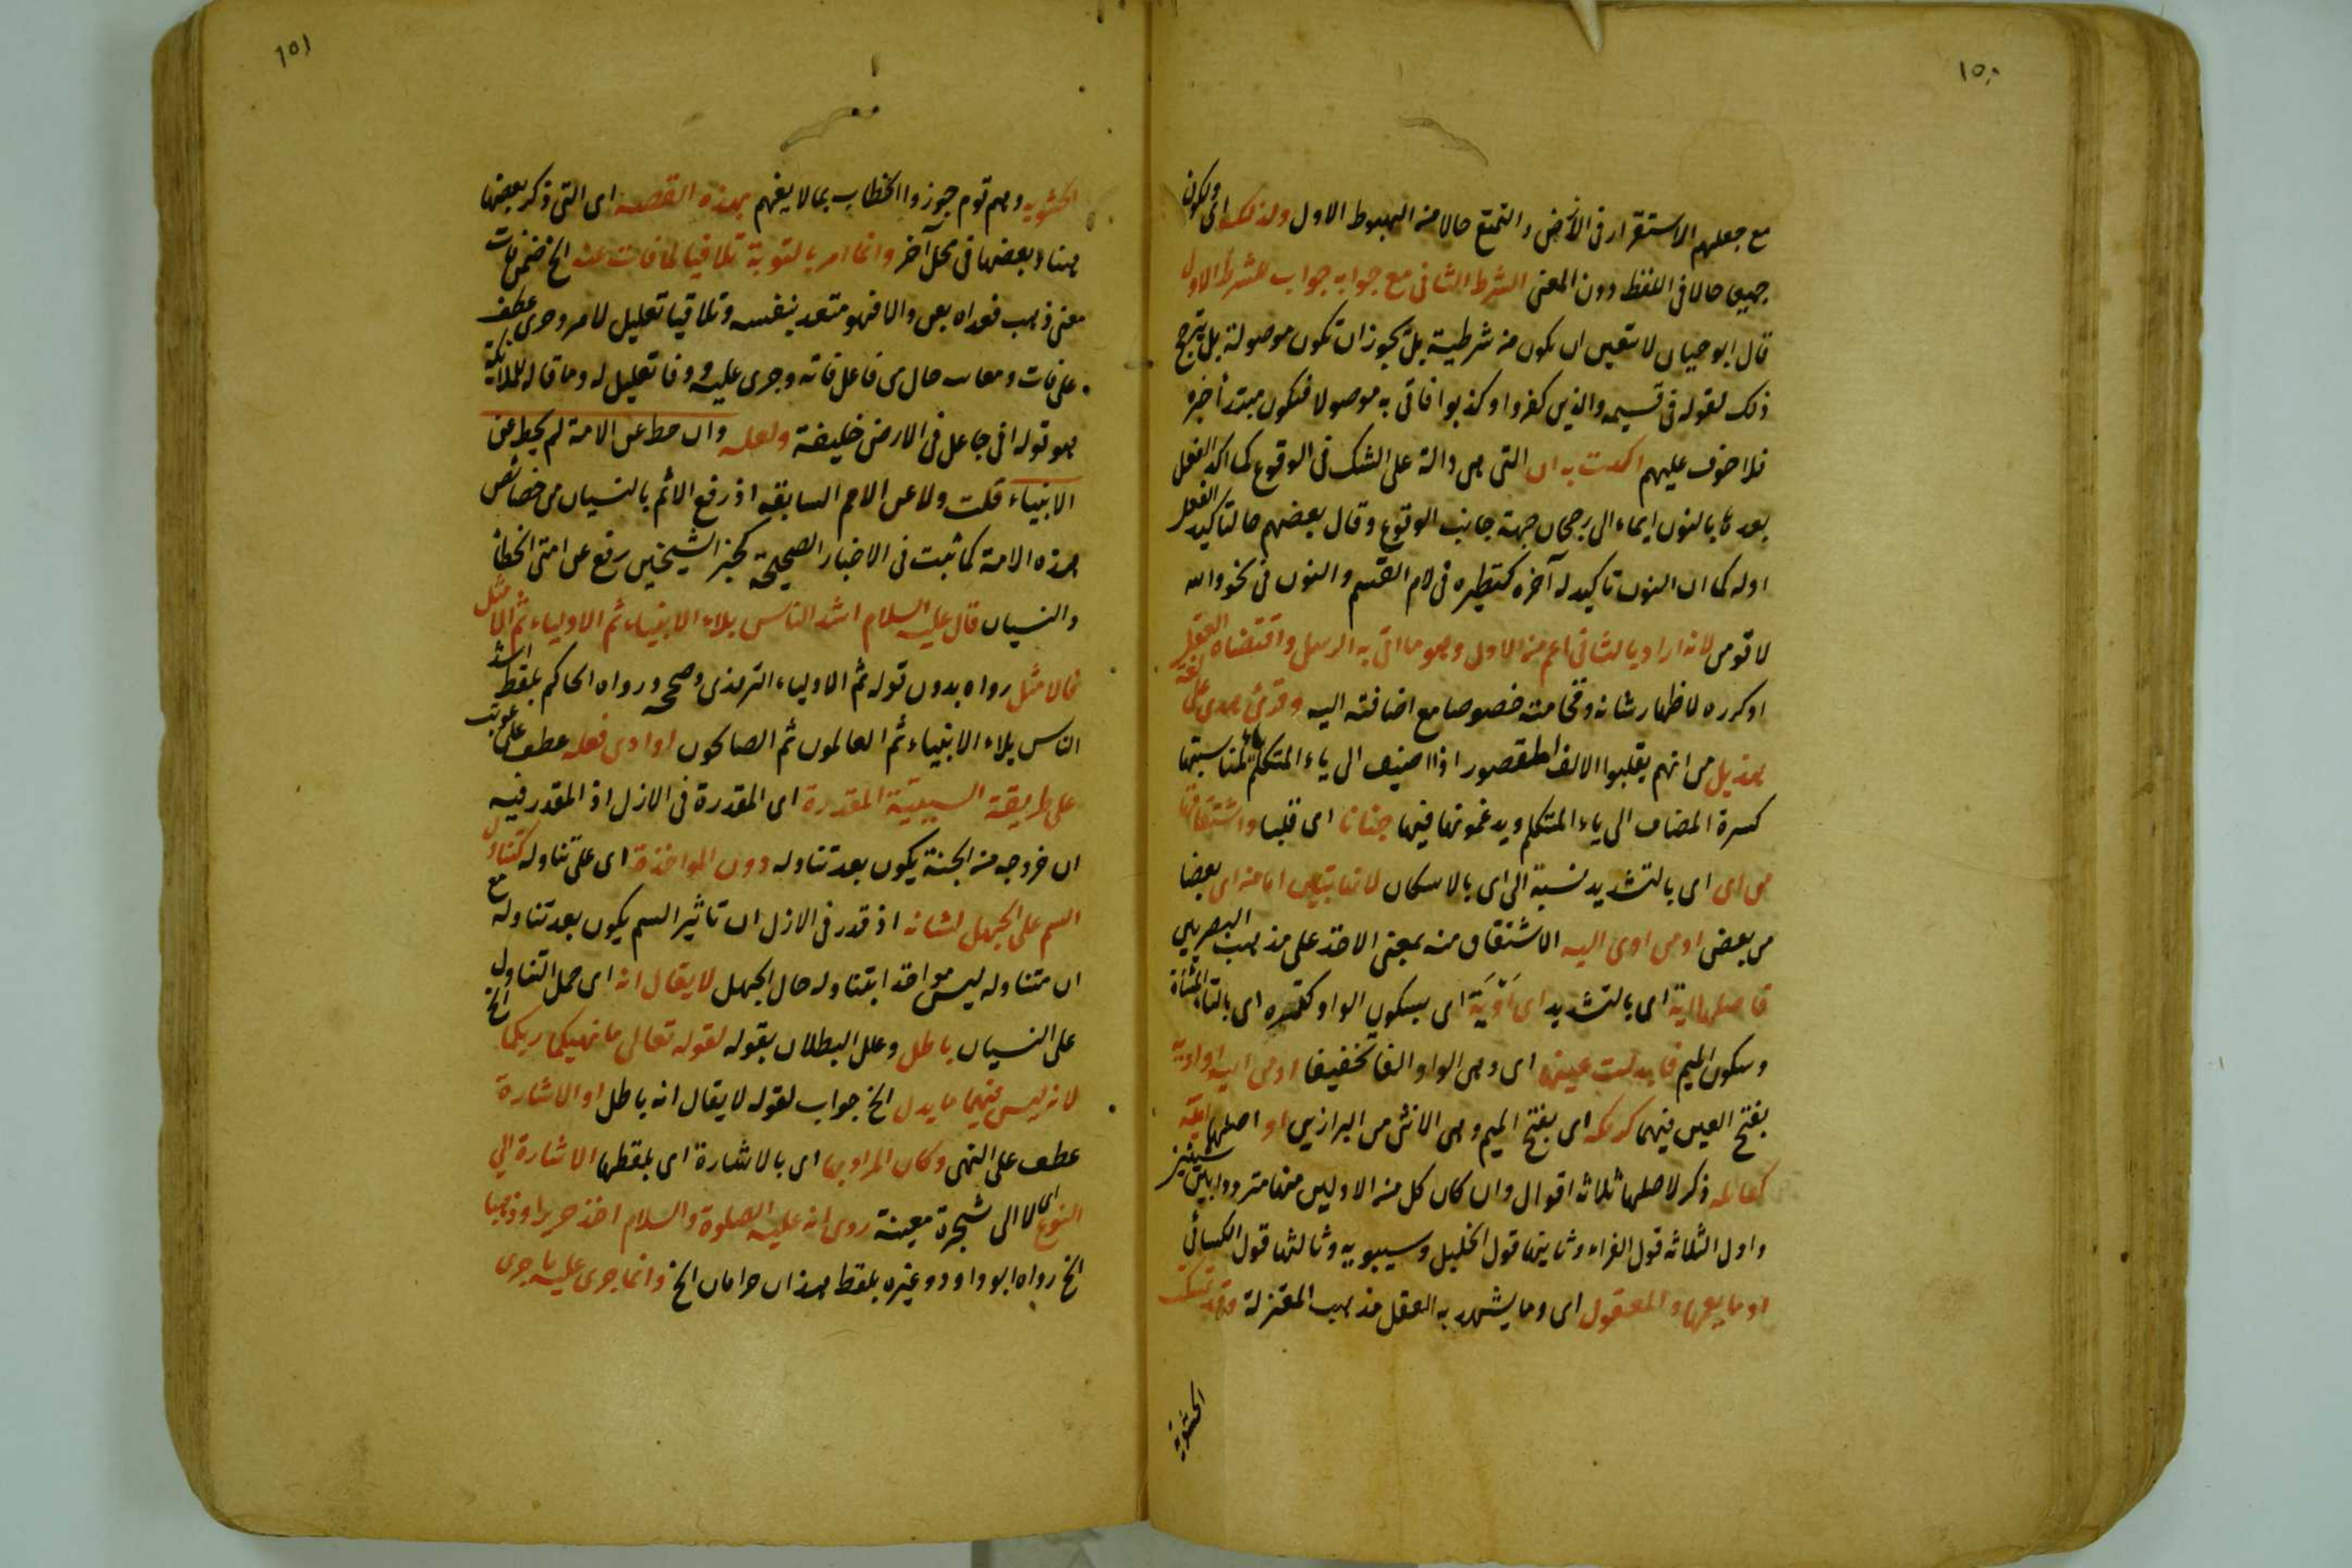 ١٥٠
مع جعلهم الاستقرار فى الأرض والتمتع حالا من الهبوط الاول ولذلك اى ولكون
جميعا حالا فى اللفظ دون المعنى الشرط الثانى مع جوابه جواب للشرط الاول
قال ابو حيان لا يتعين ان يكون من شرطية بل يجوز ان تكون موصولة بل يترجح
ذلك لقوله فى قسيمه والذين كفروا وكذبوا فاتى به موصولا فتكون مبتدأ خبره
فلا خوف عليهم اكدت به ان التى هى دالة على الشك فى الوقوع كما اكد الفعل
بعدها بالنون ايماء الى رجحان جهة جانب الوقوع وقال بعضهم ما لتاكيد الفعل
اوله كما ان النون تاكيد له آخره كنظيره فى لام القسم والنون فى نحو والله
لاقومن لانه اراد بالثانى اعم من الاول وهو ما اتى به الرسل واقتضاه العقل
او كرره لاظهار شانه وفخامته خصوصا مع اضافته اليه وقرئ هدى على لغة
هذيل من انهم يقلبوا الالف المقصور اذا اضيف الى ياء المتكلم ياء لمناسبتها
كسرة المضاف الى ياء المتكلم ويدغمونها فيها جنانا اى قلبا واشتقاقها
من اى اى بالتشديد نسبة الى اى بالاسكان لانها تبين ايا من اى بعضا
من بعض او من اوى اليه الاشتقاق منه بمعنى الاخذ على مذهب البصريين
فاصلها اية اى بالتشديد اى اَوْيَة اى بسكون الواو كتمرة اى بالتاء المثناة
وسكون الميم فابدلت عينها اى وهى الواو الفا تخفيفا او من ايية او اوية
بفتح العين فيهما كرمكة اى بفتح الميم وهى الانثى من البراذين او اصلها آئية
كقائلة ذكر لاصلها ثلاثة اقوال وان كان كل من الاولين منها مترددا بين شيئين
واول الثلاثة قول الفراء وثانيتها قول الخليل وسيبويه وثالثها قول الكسائى
او ما يعمها والمعقول اى وما يشهد به العقل مذهب المعتزلة وقد تمسك
الحشوية
١٥١
الحشوية وهم قوم جوزوا الخطاب بما لا يفهم بهذه القصة اى التى ذكر بعضها
هنا وبعضها فى محل آخر وانما امر بالتوبة تلافيا لما فات عنه الخ ضمن فات
معنى ذهب فعداه بعن والا فهو متعد بنفسه وتلافيا تعليل لامر وجرى عطف
على فات ومعاتبه حال من فاعل فاته وجرى عليه ووفا تعليل له وما قاله للملائكة
هو قوله انى جاعل فى الارض خليفة ولعله وان حط عن الامة لم يحط عن
الانبياء قلت ولا عن الامم السابقة اذ رفع الاثم بالنسيان من خصائص
هذه الامة كما ثبت فى الاخبار الصحيحة كخبر الشيخين رفع عن امتى الخطأ
والنسيان قال عليه السلام اشد الناس بلاء الانبياء ثم الاولياء ثم الامثل
فالامثل رواه بدون قوله ثم الاولياء الترمذى وصححه ورواه الحاكم بلفظ اشد
الناس بلاء الانبياء ثم العالمون ثم الصالحون او ادى فعله عطف على عوتب
على طريقة السببية المقدرة اى المقدرة فى الازل اذ المقدر فيه
ان خروجه من الجنة يكون بعد تناوله دون المواخذة اى على تناوله كتناول
السم على الجهل لشانه اذ قدر فى الازل ان تاثير السم يكون بعد تناوله مع
ان متناوله ليس مواخذا بتناوله حال الجهل لا يقال انه اى حمل التناول الخ
على النسيان باطل وعلل البطلان بقوله لقوله تعالى ما نهيكما ربكما
لانه ليس فيهما ما يدل الخ جواب لقوله لا يقال انه باطل او الاشارة
عطف على النهى وكان المراد بها اى بالاشارة اى بلفظها الاشارة الى
النوع اى لا الى شجرة معينة روى انه عليه الصلوة والسلام اخذ حريرا وذهبا
الخ رواه ابو داود وغيره بلفظ هذان حرامان الخ وانما جرى عليه ما جرى